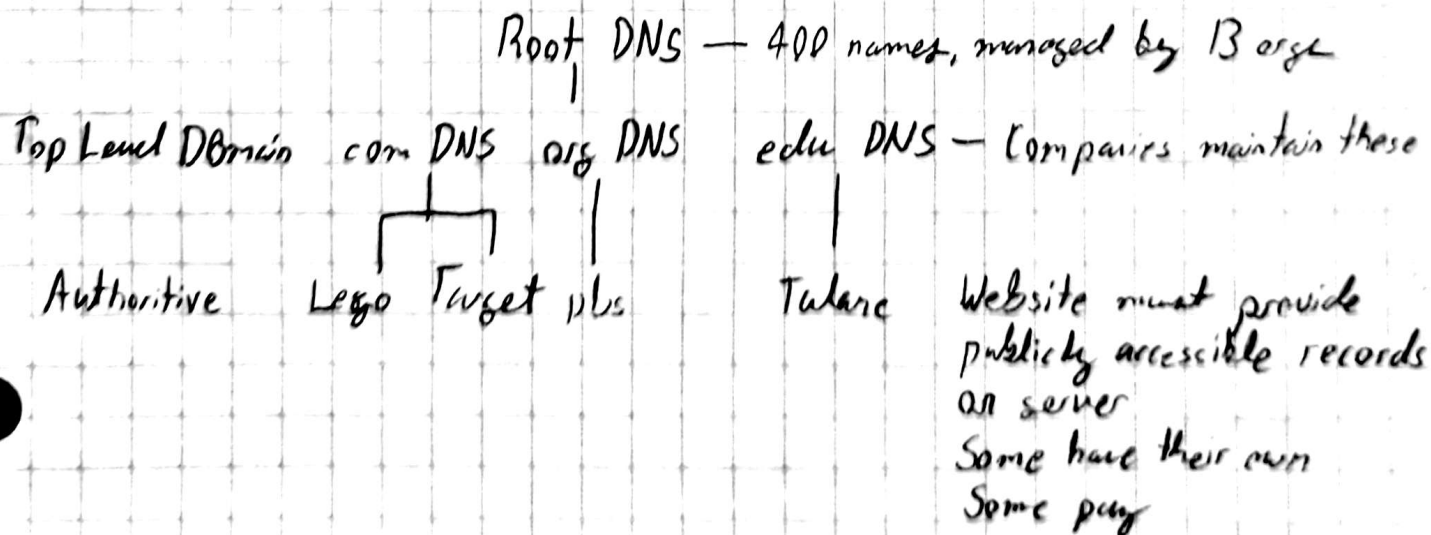 Root DNS — 400 names, managed by 13 orgs
Top Level Domain com DNS org DNS edu DNS — Companies maintain these
Authoritive Lego Target pbs Tulane Website must provide
publicly accessible records
on server
Some have their own
Some pay